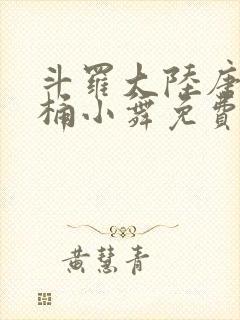 斗羅大陸唐
桶小舞免費
黄慧青